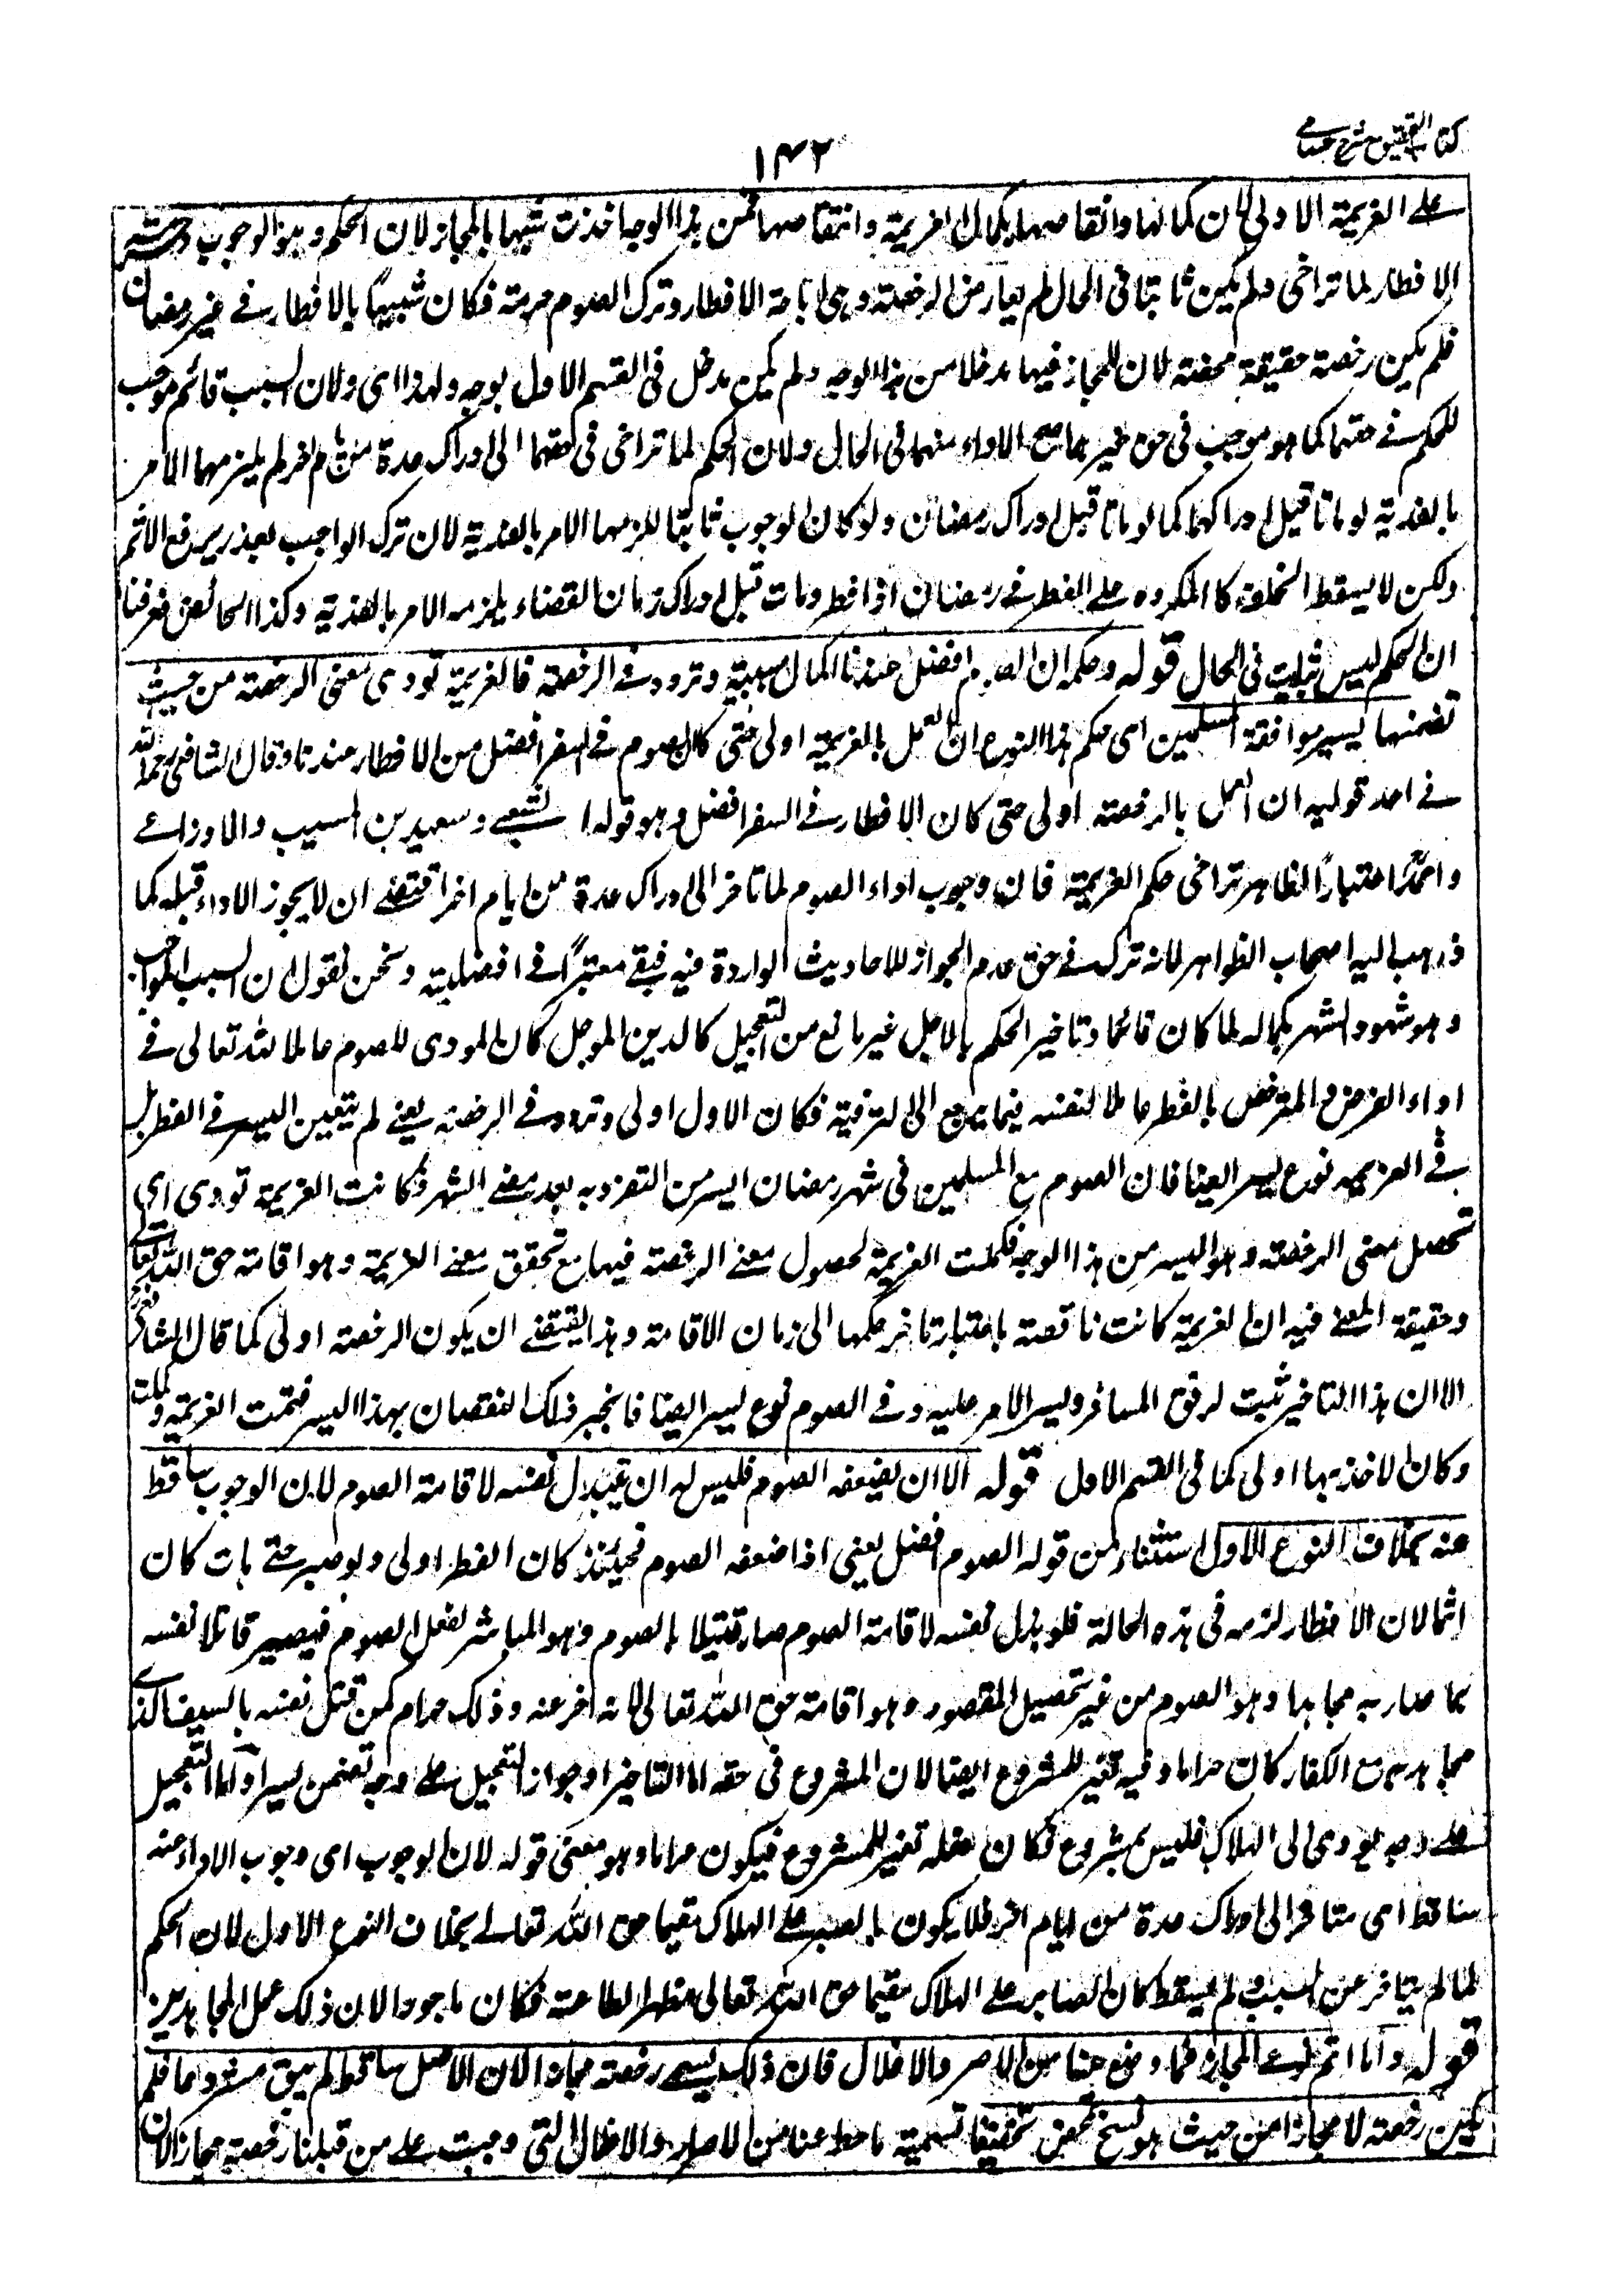 كتاب التحقيق شرح حسامي
١٤٢
على العزيمة الاولى لان كمالها وانتقاصها بكمال العزيمة وانتقاصها فمن هذا الوجه اخذت شبها بالمجاز لان الحكم وهو الوجوب وحرمة
الافطار لما تراخى ولم يكن ثابتا في الحال لم يعارض الرخصة وهي اباحة الافطار وترك الصوم حرمة فكان شبيها بالافطار في غير رمضان
فلم يكن رخصة حقيقة محضة لان للمجاز فيها مدخلا من هذا الوجه ولم يكن مدخل في القسم الاول بوجه ولهذا اى ولان السبب قائم موجب
للحكم في حقهما كما هو موجب في حق غيرهما صح الاداء منهما في الحال ولان الحكم لما تراخى في حقهما الى ادراك عدة من ايام اخر لم يلزمهما الامر
بالفدية لو ماتا قبل ادراكهما كما لو ماتا قبل ادراك رمضان ولو كان الوجوب ثابتا للزمهما الامر بالفدية لان ترك الواجب بعذر يرفع الاثم
ولكن لا يسقط الخلف كالمكره على الفطر في رمضان اذا افطر ومات قبل ادراك زمان القضاء يلزمه الامر بالفدية وكذا الحائض فعرفنا
ان الحكم ليس بثابت في الحال قوله وحكمه ان الصوم افضل عندنا لكمال سببية وتردد في الرخصة فالعزيمة تودى معنى الرخصة من حيث
تضمنها يسير موافقة المسلمين اى حكم هذا النوع ان العمل بالعزيمة اولى حتى كان الصوم في السفر افضل من الافطار عندنا وقال الشافعي رحمه الله
في احد قوليه ان العمل بالرخصة اولى حتى كان الافطار في السفر افضل وهو قول الشعبي وسعيد بن المسيب والاوزاعي
واحمد اعتبارا لظاهر تراخى حكم العزيمة فان وجوب اداء الصوم لما تاخر الى ادراك عدة من ايام اخر اقتضى ان لا يجوز الاداء قبله كما
ذهب اليه اصحاب الظواهر لانه ترك في حق عدم الجواز للاحاديث الواردة فيه فبقي معتبرا في افضليته ونحن نقول ان السبب الموجب
وهو شهود الشهر بكماله لما كان قائما وتاخير الحكم بالاجل غير مانع من التعجيل كالدين الموجل كان المودى للصوم عاملا لله تعالى في
اداء الفرض والمترخص بالفطر عاملا لنفسه فيما يرجع الى الترفيه فكان الاول اولى وتردد في الرخصة يعنى لم يتعين اليسر في الفطر بل
في العزيمة نوع يسر ايضا فان الصوم مع المسلمين في شهر رمضان ايسر من التفرد به بعد مضى الشهر فكانت العزيمة تودى اى
تحصل معنى الرخصة وهو اليسر من هذا الوجه فكملت العزيمة لحصول معنى الرخصة فيها مع تحقق معنى العزيمة وهو اقامة حق الله تعالى
وحقيقة المعنى فيه ان العزيمة كانت ناقصة باعتبار تاخر حكمها الى زمان الاقامة وهذا يقتضى ان يكون الرخصة اولى كما قال الشافعي
الا ان هذا التاخير ثبت لرفق المسافر وليسر الامر عليه وفي الصوم نوع يسر ايضا فانجبر ذلك النقصان بهذا اليسر فتمت العزيمة وكملت
وكان الاخذ بها اولى كما في القسم الاول قوله الا ان يضعفه الصوم فليس له ان يبذل نفسه لاقامة الصوم لان الوجوب ساقط
عنه بخلاف النوع الاول استثناء من قوله الصوم افضل يعنى اذا ضعفه الصوم فحينئذ كان الفطر اولى ولو صبر حتى مات كان
اثما لان الافطار لزمه في هذه الحالة فلو بذل نفسه لاقامة الصوم صار قتيلا بالصوم وهو المباشر لفعل الصوم فيصير قاتلا نفسه
بما صار به مجاهدا وهو الصوم من غير تحصيل المقصود وهو اقامة حق الله تعالى لانه اخر عنه وذلك حرام كمن قتل نفسه بالسيف الذى
مجاهد به مع الكفار كان حراما وفيه تغير للمشروع ايضا لان المشروع في حقه اما التاخير او جواز التعجيل على وجه تضمن يسرا واما التعجيل
على وجه يودى الى الهلاك فليس بمشروع فكان فعله تغير للمشروع فيكون حراما وهو معنى قوله لان الوجوب اى وجوب الاداء عنه
ساقط اى متاخر الى ادراك عدة من ايام اخر فلا يكون بالصبر على الهلاك مقيما حق الله تعالى بخلاف النوع الاول لان الحكم
لما لم يتاخر عن السبب ولم يسقط كان الصابر على الهلاك مقيما حق الله تعالى مظهرا لطاعته فكان ماجورا لان ذلك عمل المجاهدين
قوله واما اتم نوعى المجاز فما وضع عنا من الاصر والاغلال فان ذلك يسمى رخصة مجازا لان الاصل ساقط لم يبق مشروعا فلم
يكن رخصة الا مجازا من حيث هو نسخ تمحض تخفيفا تسمية ما حط عنا من الاصار والاغلال التى وجبت على من قبلنا رخصة مجازا لان